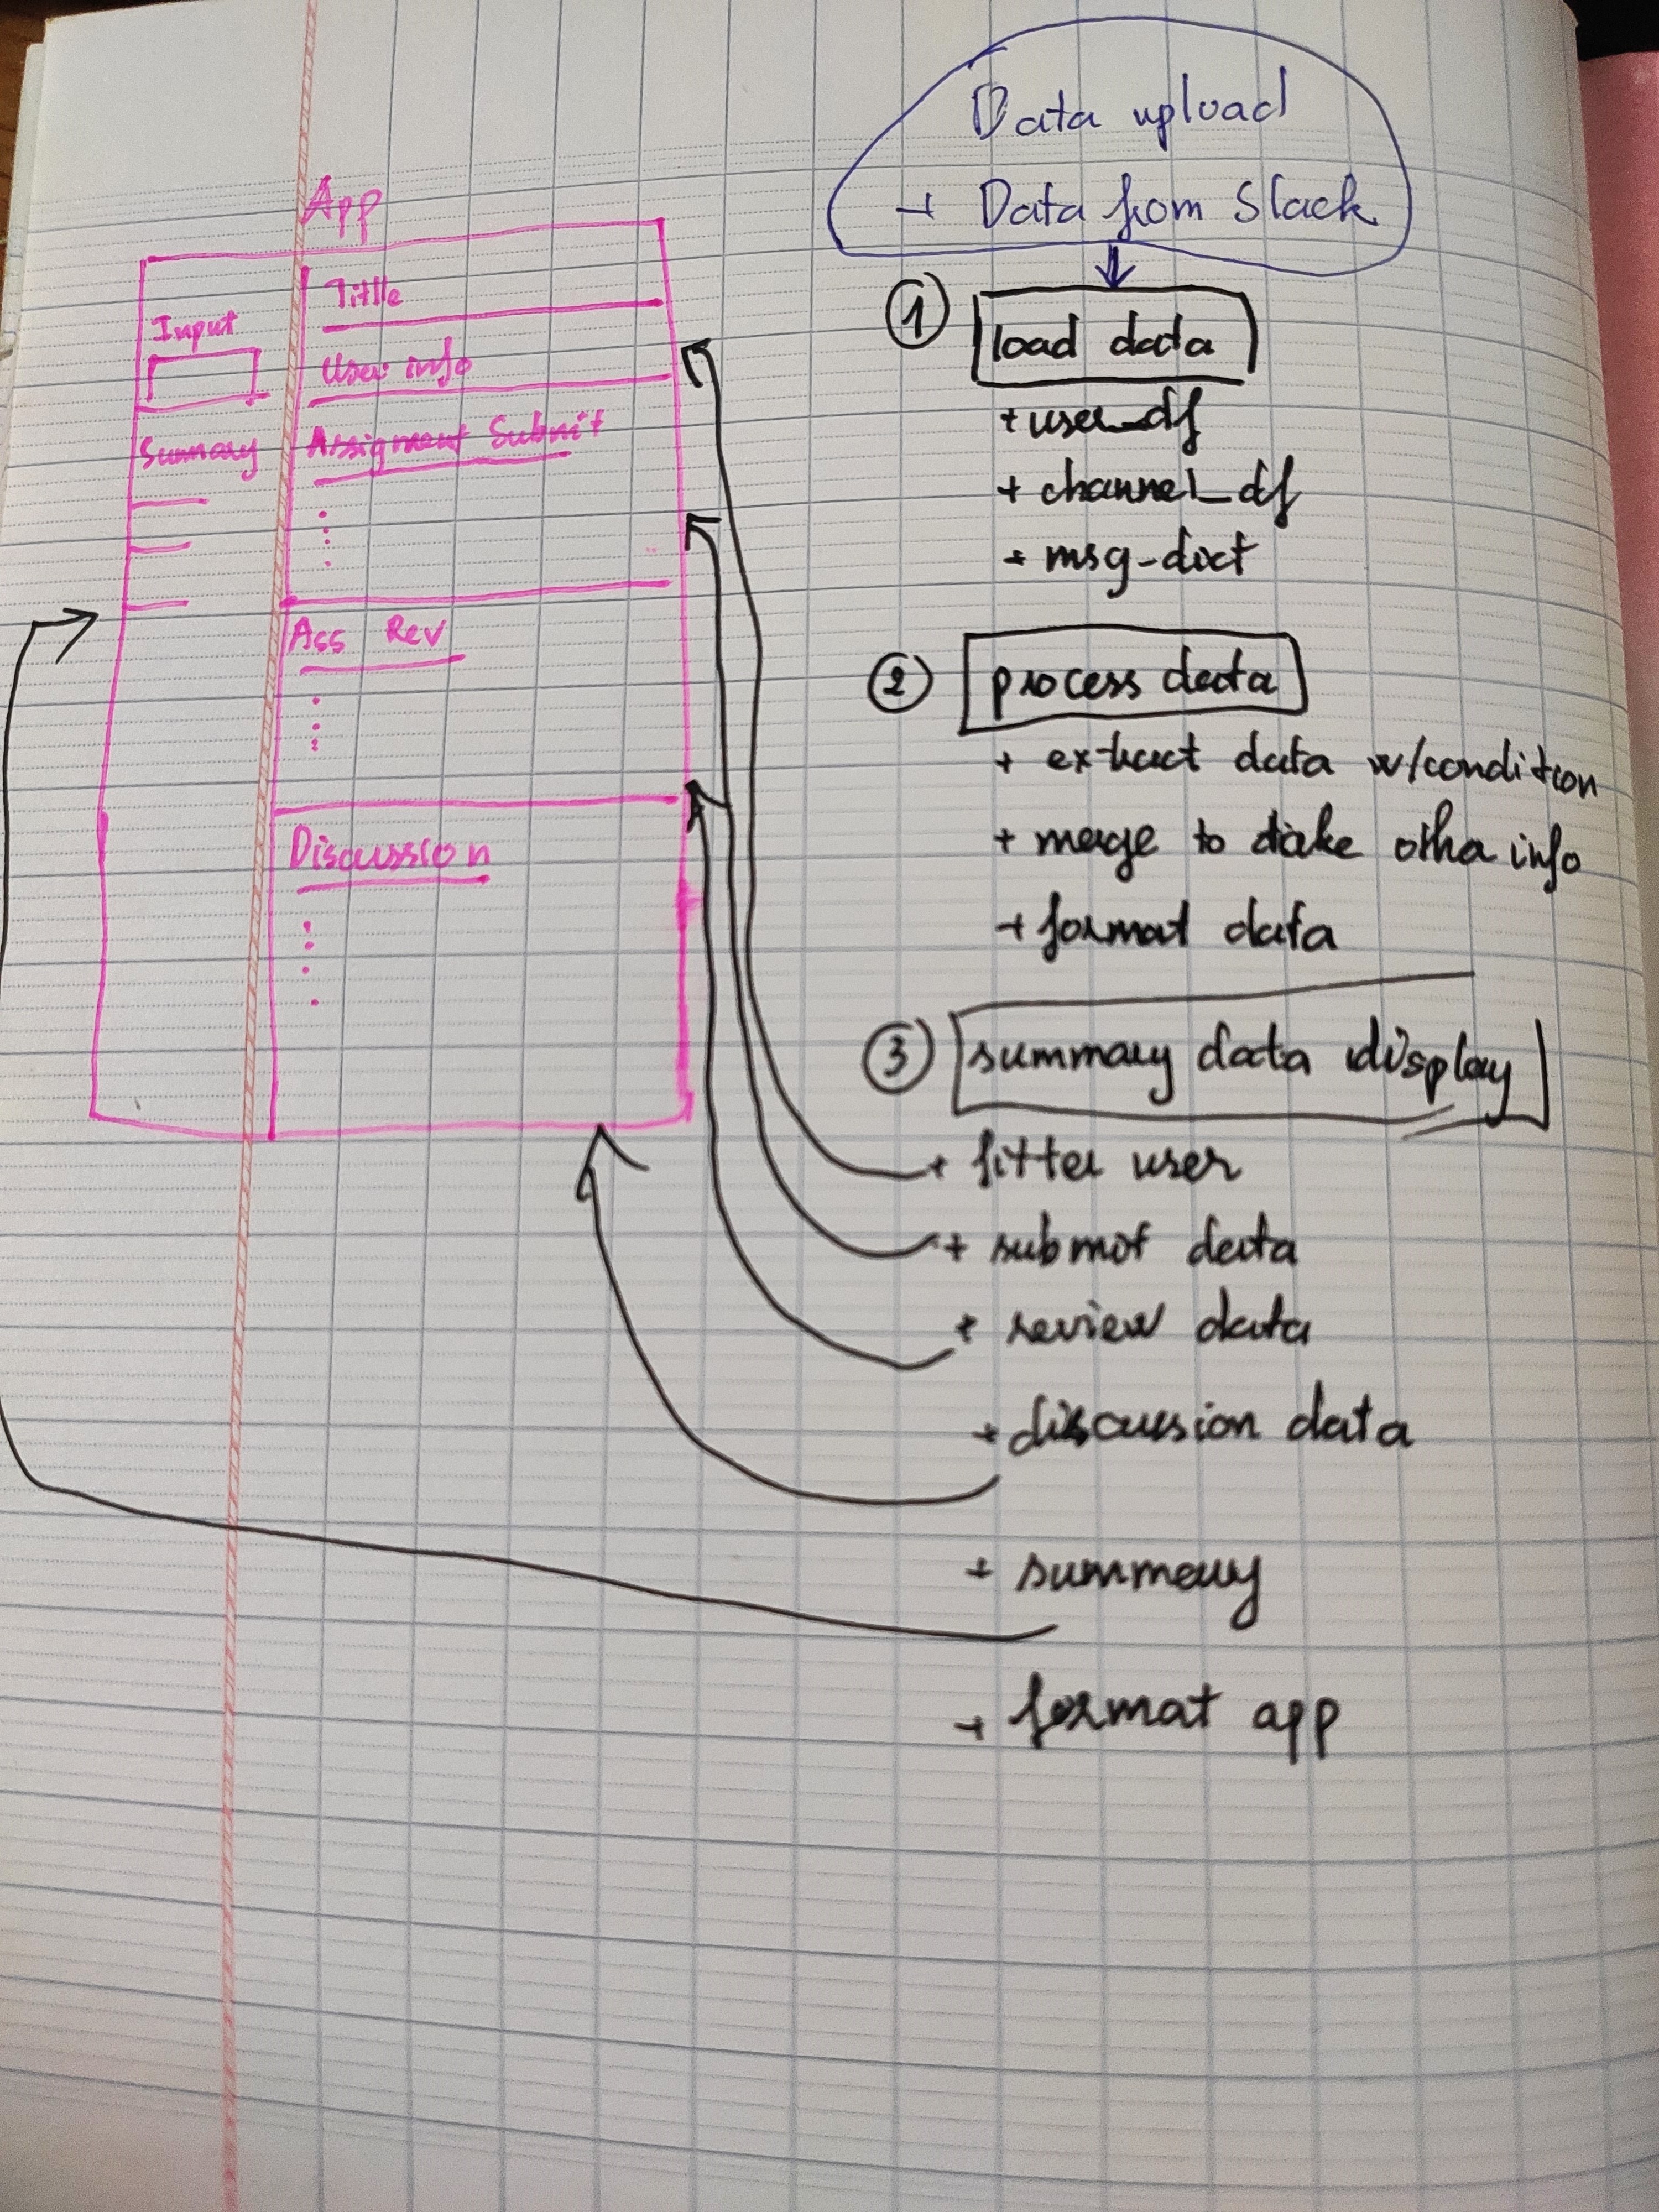 App
Input
Summary
Title
User info
Assigment Submit
Ass Rev
Discussion
Data upload
+ Data from Slack
① load data
+ user_df
+ channel_df
+ msg-dict
② process data
+ extract data w/condition
+ merge to take other info
+ format data
③ summary data display
+ filter user
+ submit data
+ review data
+ discussion data
+ summary
+ format app